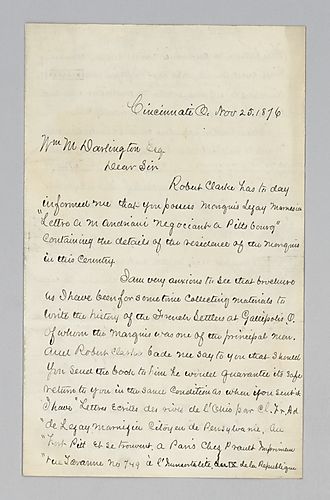 Cincinnati O. Nov 25. 1876
Wm M Darlington Esq
Dear Sir
Robert Clarke has to day
informed me that you possess Marquis Lezay Marnesia
"Lettre a M Andriani Negociant a Pittsbourg"
Containing the details of the residence of the Marquis
in this Country.
I am very anxious to see that brochure
as I have been for sometime Collecting materials to
write the history of the French Settlers at Gallipolis, O.
of whom the Marquis was one of the principal men.
And Robert Clarke bade me say to you that I should
you send the book to him he would guarantee its safe
return to you in the same Condition as when you sent it
I have "Lettres Ecrites des rives de l'Ohio par Cl. Fr. Ad
de Lezay Marnezia Citoyen de Pensylvania, Au
"Fort Pitt Et se trouvent, a Paris Chez Prault Imprimeur
"rue Taranne No 749 à l'Immortalité, An IX. de la Republique